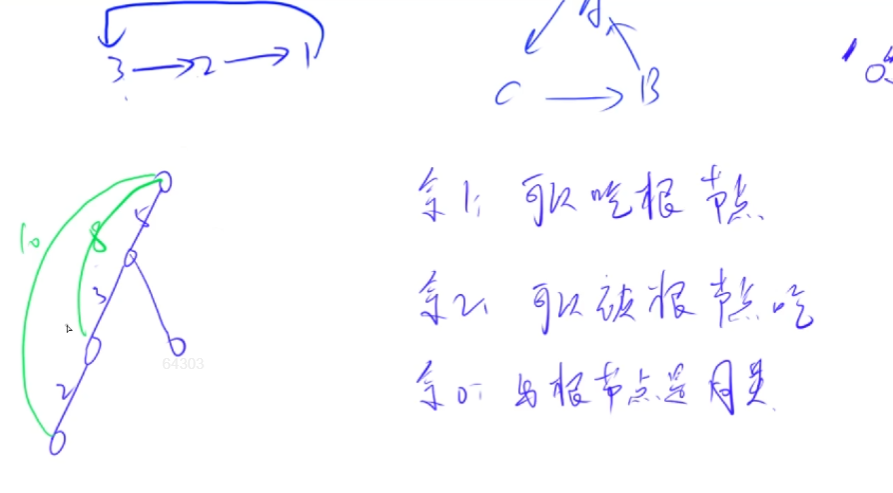 3 → 2 → 1
A
C → B
10
8
5
3
2
64303
余1: 可以吃根节点
余2: 可以被根节点吃
余0: 与根节点是同类